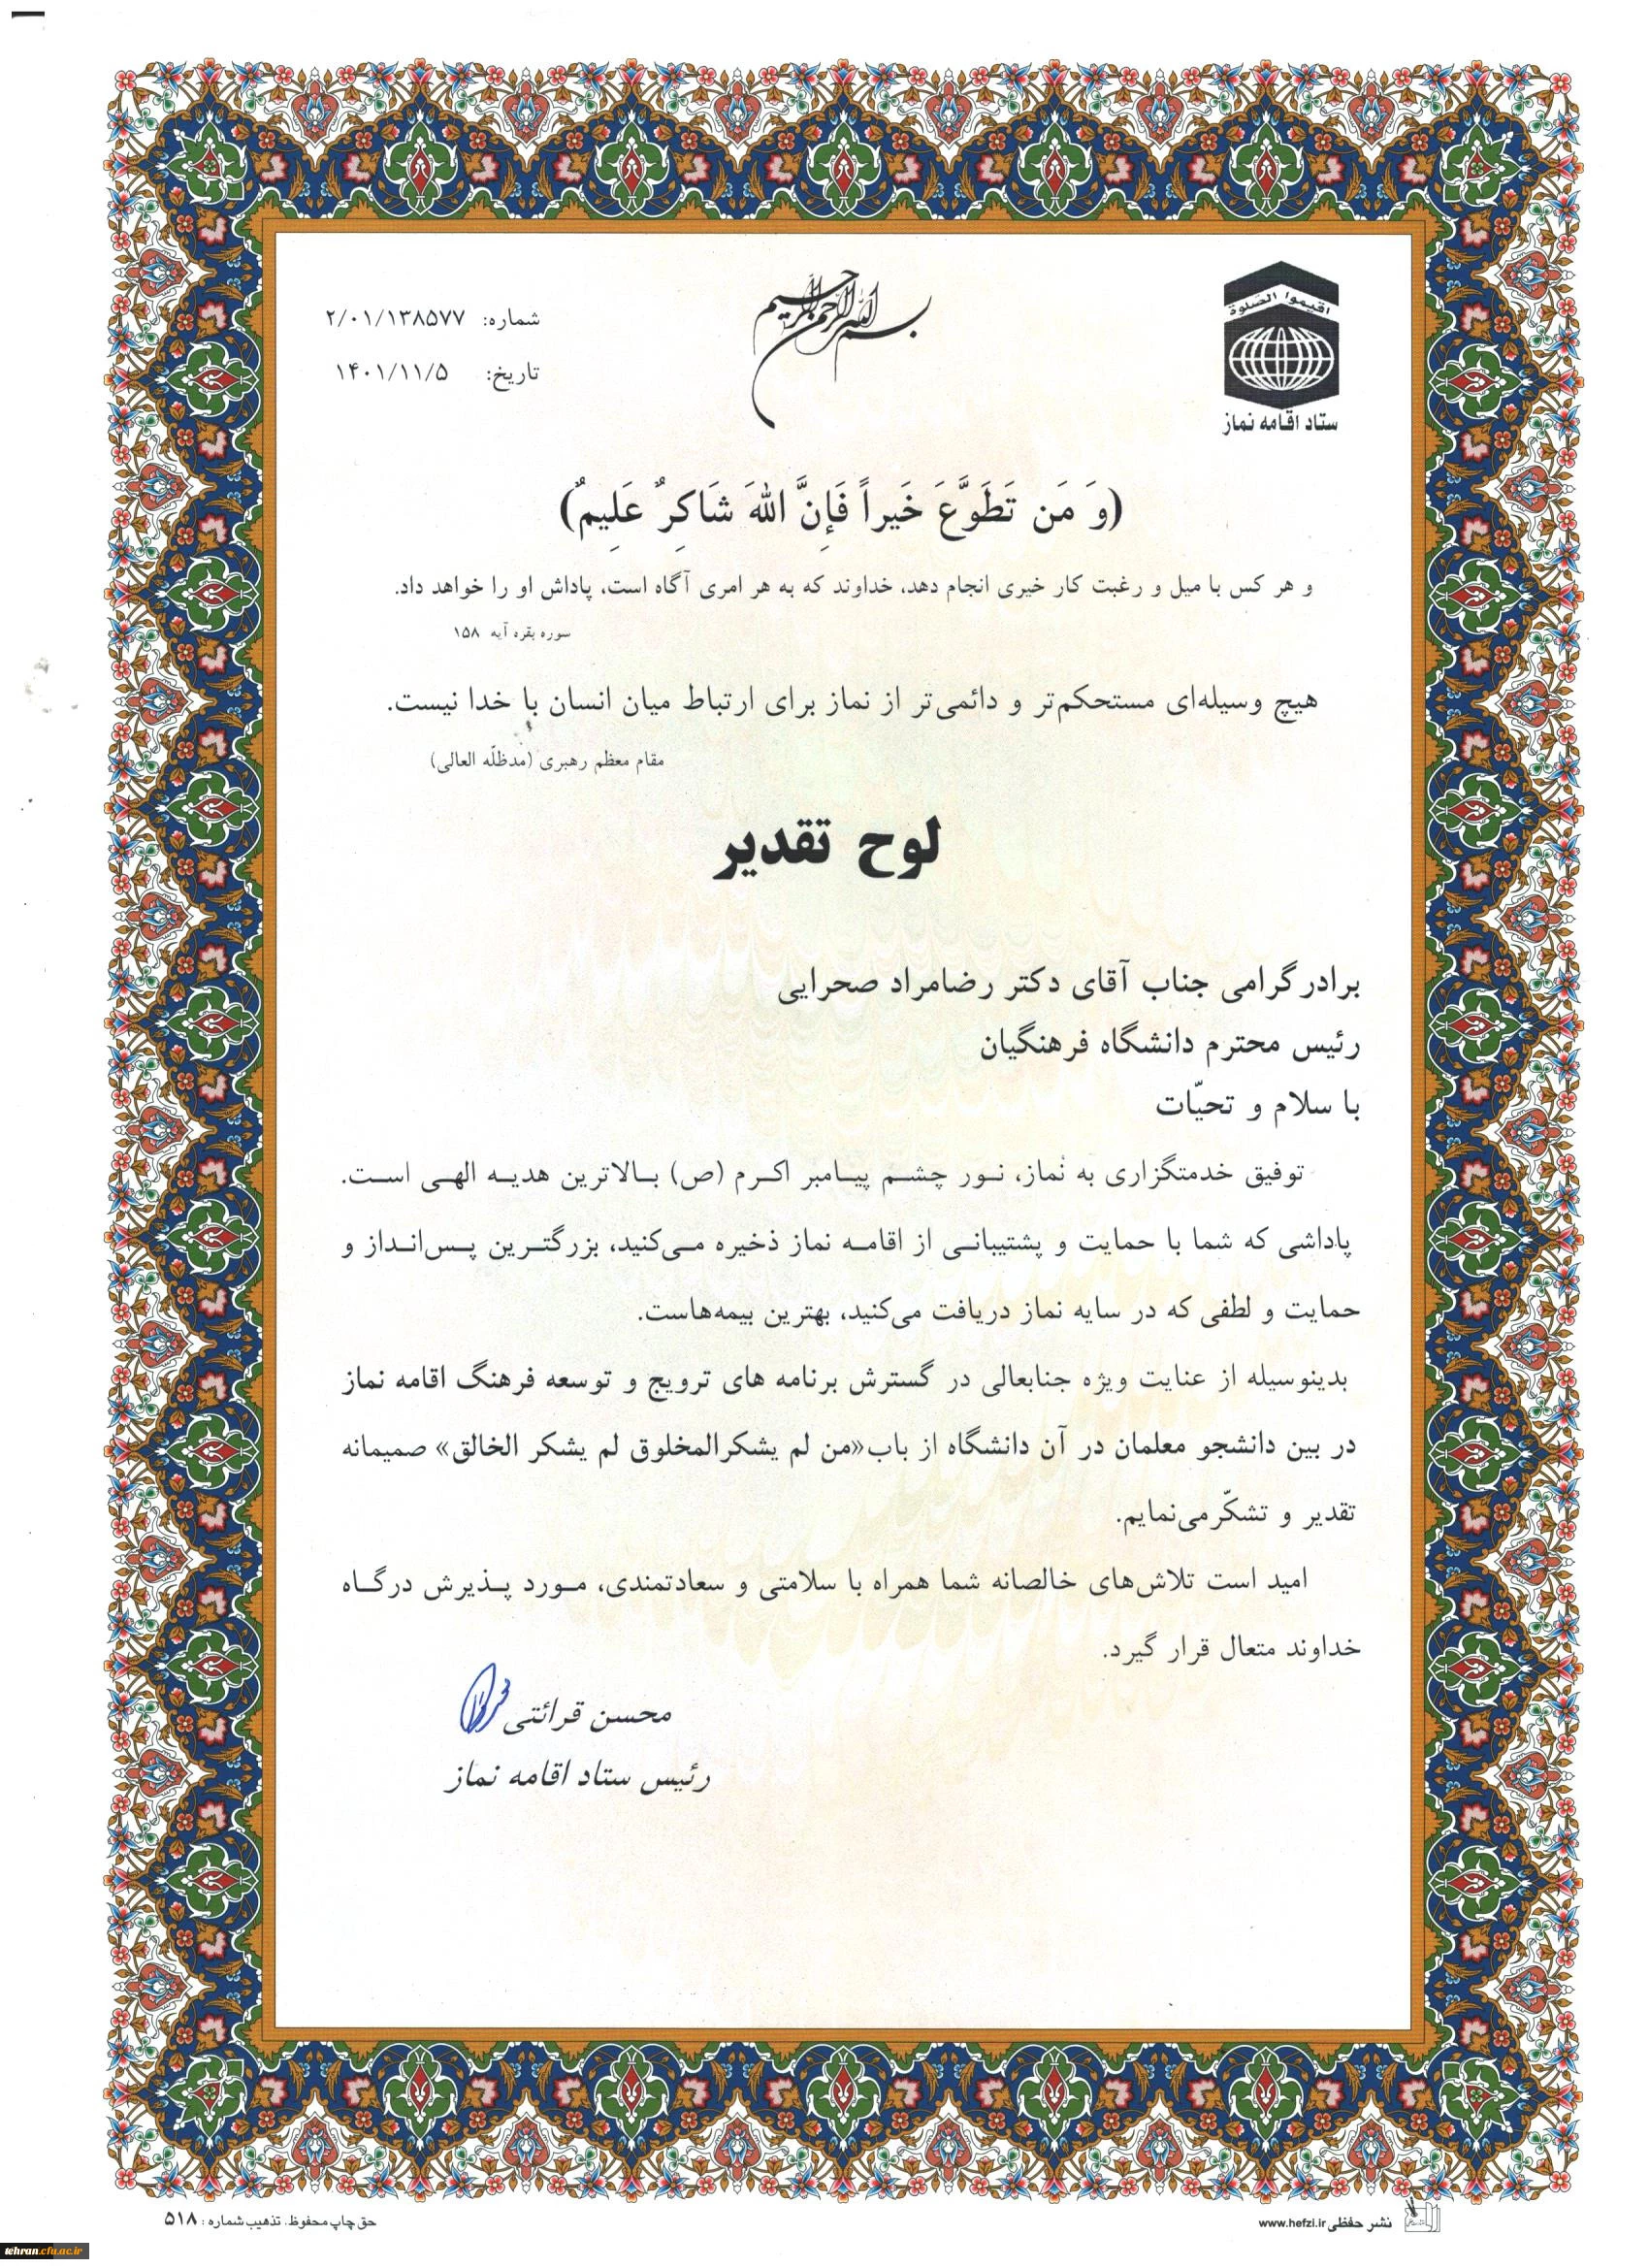 بسم الله الرحمن الرحیم
اقیموا الصلوة
ستاد اقامه نماز
شماره: ۲/۰۱/۱۳۸۵۷۷
تاریخ: ۱۴۰۱/۱۱/۵
(وَ مَن تَطَوَّعَ خَیراً فَإِنَّ اللهَ شَاکِرٌ عَلِیمٌ)
و هر کس با میل و رغبت کار خیری انجام دهد، خداوند که به هر امری آگاه است، پاداش او را خواهد داد.
سوره بقره آیه ۱۵۸
هیچ وسیله‌ای مستحکم‌تر و دائمی‌تر از نماز برای ارتباط میان انسان با خدا نیست.
مقام معظم رهبری (مدظلّه العالی)
لوح تقدیر
برادر گرامی جناب آقای دکتر رضامراد صحرایی
رئیس محترم دانشگاه فرهنگیان
با سلام و تحیّات
توفیق خدمتگزاری به نماز، نـور چشـم پیـامبر اکـرم (ص) بـالاترین هدیـه الهـی اسـت.
پاداشی که شما با حمایت و پشتیبانـی از اقامـه نماز ذخیره مـی‌کنید، بزرگتـرین پـس‌انـداز و
حمایت و لطفی که در سایه نماز دریافت می‌کنید، بهترین بیمه‌هاست.
بدینوسیله از عنایت ویژه جنابعالی در گسترش برنامه های ترویج و توسعه فرهنگ اقامه نماز
در بین دانشجو معلمان در آن دانشگاه از باب«من لم یشکرالمخلوق لم یشکر الخالق» صمیمانه
تقدیر و تشکّرمی‌نمایم.
امید است تلاش‌های خالصانه شما همراه با سلامتی و سعادتمندی، مـورد پـذیرش درگـاه
خداوند متعال قرار گیرد.
محسن قرائتی
رئیس ستاد اقامه نماز
نشر حفظی www.hefzi.ir
حق چاپ محفوظ. تذهیب شماره: ۵۱۸
tehran.cfu.ac.ir